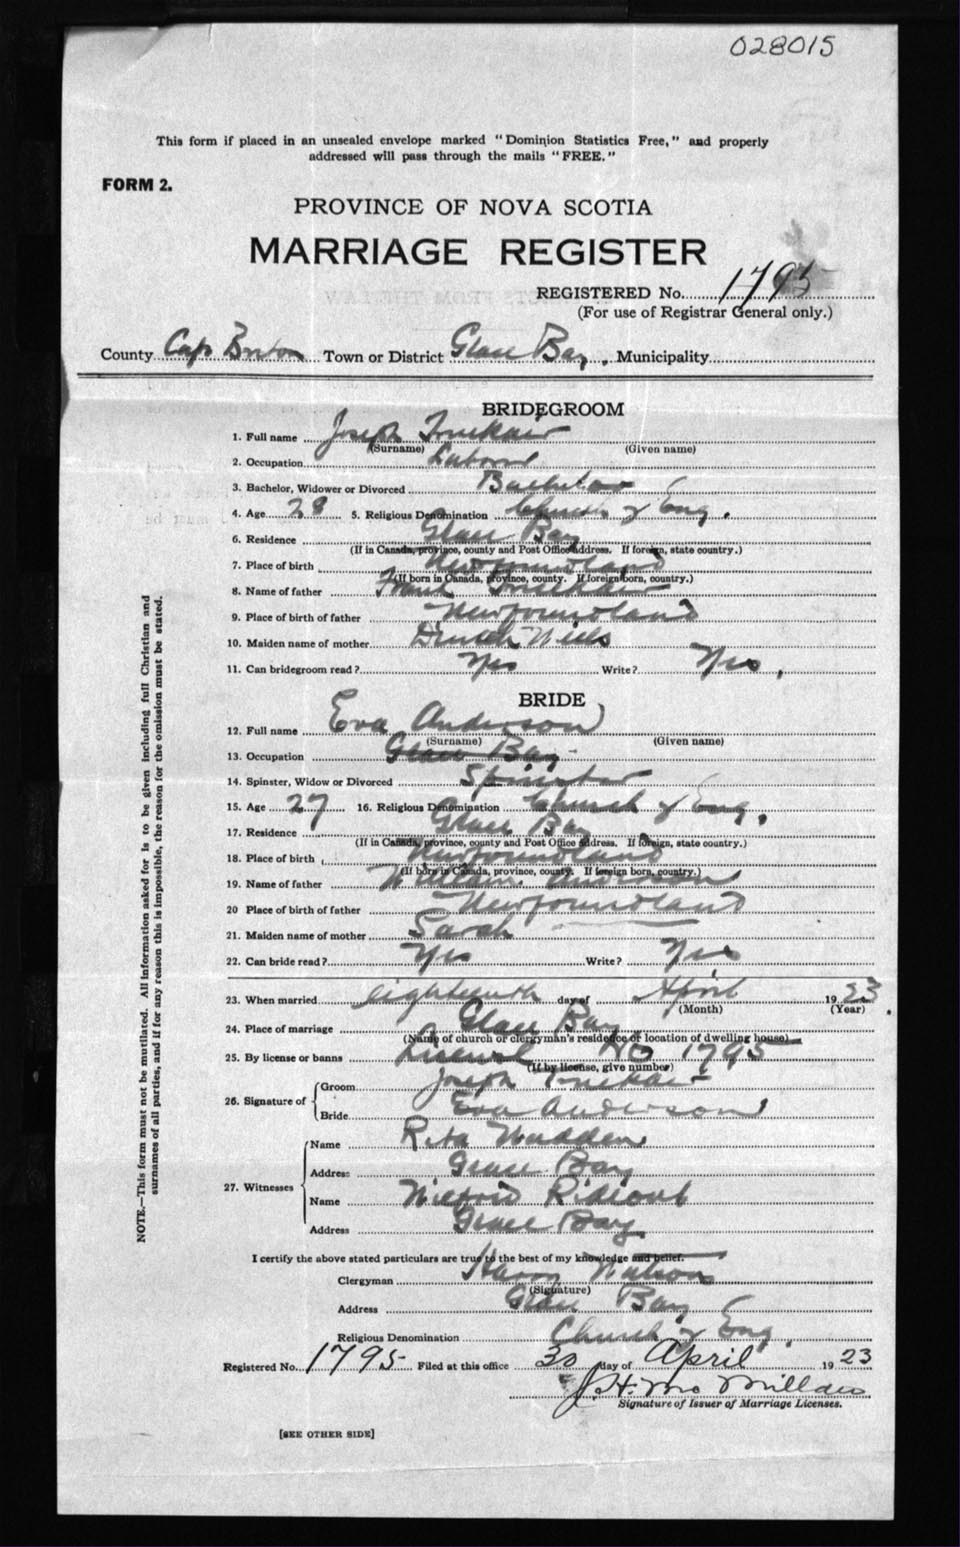 028015
This form if placed in an unsealed envelope marked "Dominion Statistics Free," and properly
addressed will pass through the mails "FREE."
FORM 2.
PROVINCE OF NOVA SCOTIA
MARRIAGE REGISTER
REGISTERED No. 1795
(For use of Registrar General only.)
County Cape Breton Town or District Glace Bay, Municipality
BRIDEGROOM
1. Full name Joseph
(Surname) (Given name)
2. Occupation Laborer
3. Bachelor, Widower or Divorced Bachelor
4. Age 28 5. Religious Denomination Church of Eng.
6. Residence Glace Bay
(If in Canada, province, county and Post Office address. If foreign, state country.)
7. Place of birth Newfoundland
(If born in Canada, province, county. If foreign born, country.)
8. Name of father Frank
9. Place of birth of father Newfoundland
10. Maiden name of mother
11. Can bridegroom read? Yes Write? Yes.
BRIDE
12. Full name Eva Anderson
(Surname) (Given name)
13. Occupation Glace Bay
14. Spinster, Widow or Divorced Spinster
15. Age 27 16. Religious Denomination Church of Eng.
17. Residence Glace Bay
(If in Canada, province, county and Post Office Address. If foreign, state country.)
18. Place of birth Newfoundland
(If born in Canada, province, county. If foreign born, country.)
19. Name of father William Anderson
20 Place of birth of father Newfoundland
21. Maiden name of mother Sarah
22. Can bride read? Yes Write? Yes
23. When married eighteenth day of April 1923.
(Month) (Year)
24. Place of marriage Glace Bay
(Name of church or clergyman's residence or location of dwelling house)
25. By license or banns No 1795
(If by license, give number)
26. Signature of Groom Joseph
Bride Eva Anderson
27. Witnesses Name Rita Wadden
Address Glace Bay
Name Wilfred Rideout
Address Glace Bay
I certify the above stated particulars are true to the best of my knowledge and belief.
Clergyman Harry Watson
(Signature)
Address Glace Bay
Religious Denomination Church of Eng.
Registered No. 1795 Filed at this office 30 day of April 1923
Signature of Issuer of Marriage Licenses.
[SEE OTHER SIDE]
NOTE.—This form must not be mutilated. All information asked for is to be given including full Christian and
surnames of all parties, and if for any reason this is impossible, the reason for the omission must be stated.